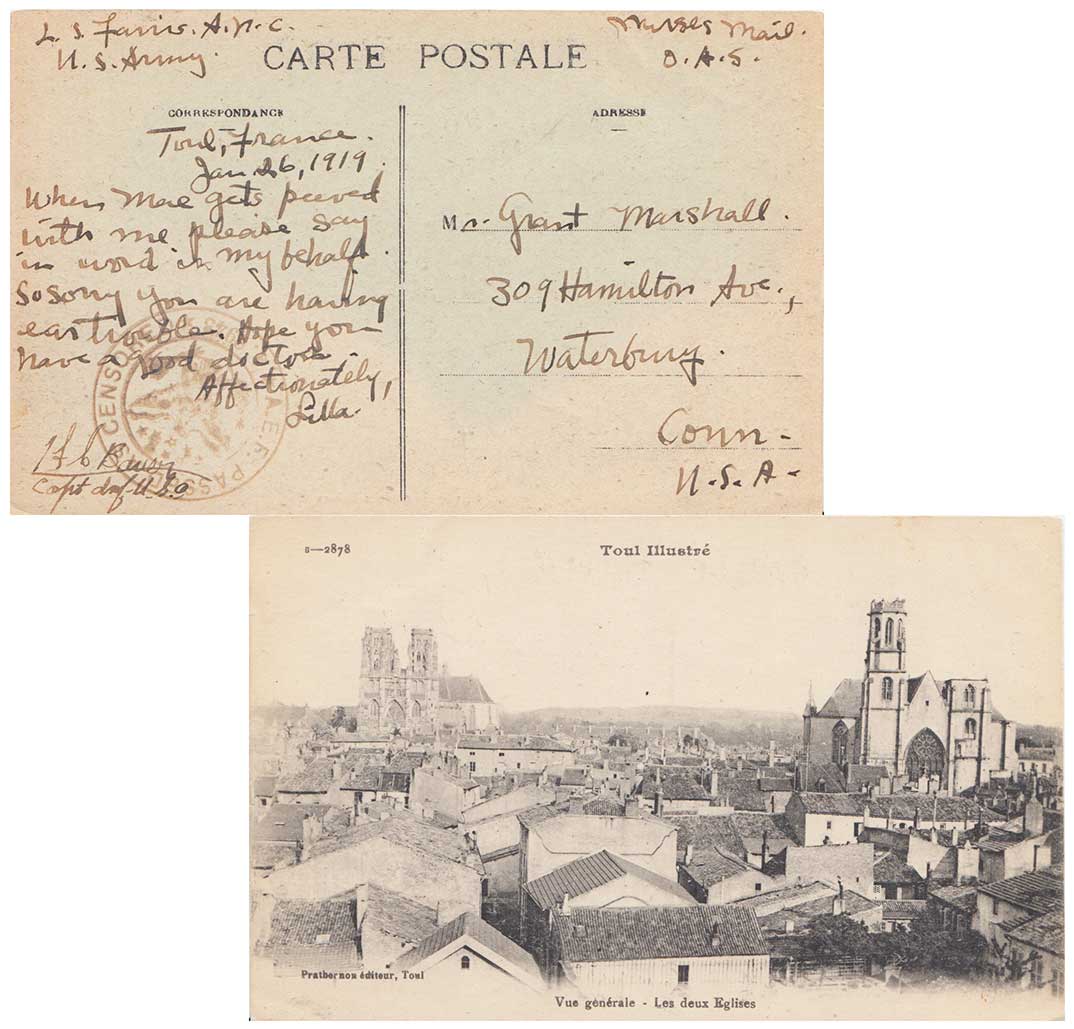 L. S. Farris. A.N.C.
U. S. Army.
Nurses Mail.
O. A. S.
CARTE POSTALE
CORRESPONDANCE
ADRESSE
Toul, France.
Jan 26, 1919.
When Mae gets peeved
with me please say
in word in my behalf.
So sorry you are having
ear trouble. Hope you
have a good doctor.
Affectionately,
Lilla.
Capt inf U.S.A
CENSORED A.E.F. PASSED
Mr. Grant Marshall.
309 Hamilton Ave.,
Waterbury.
Conn -
U. S. A -
B—2878
Toul Illustré
Prathernon éditeur, Toul
Vue générale - Les deux Eglises